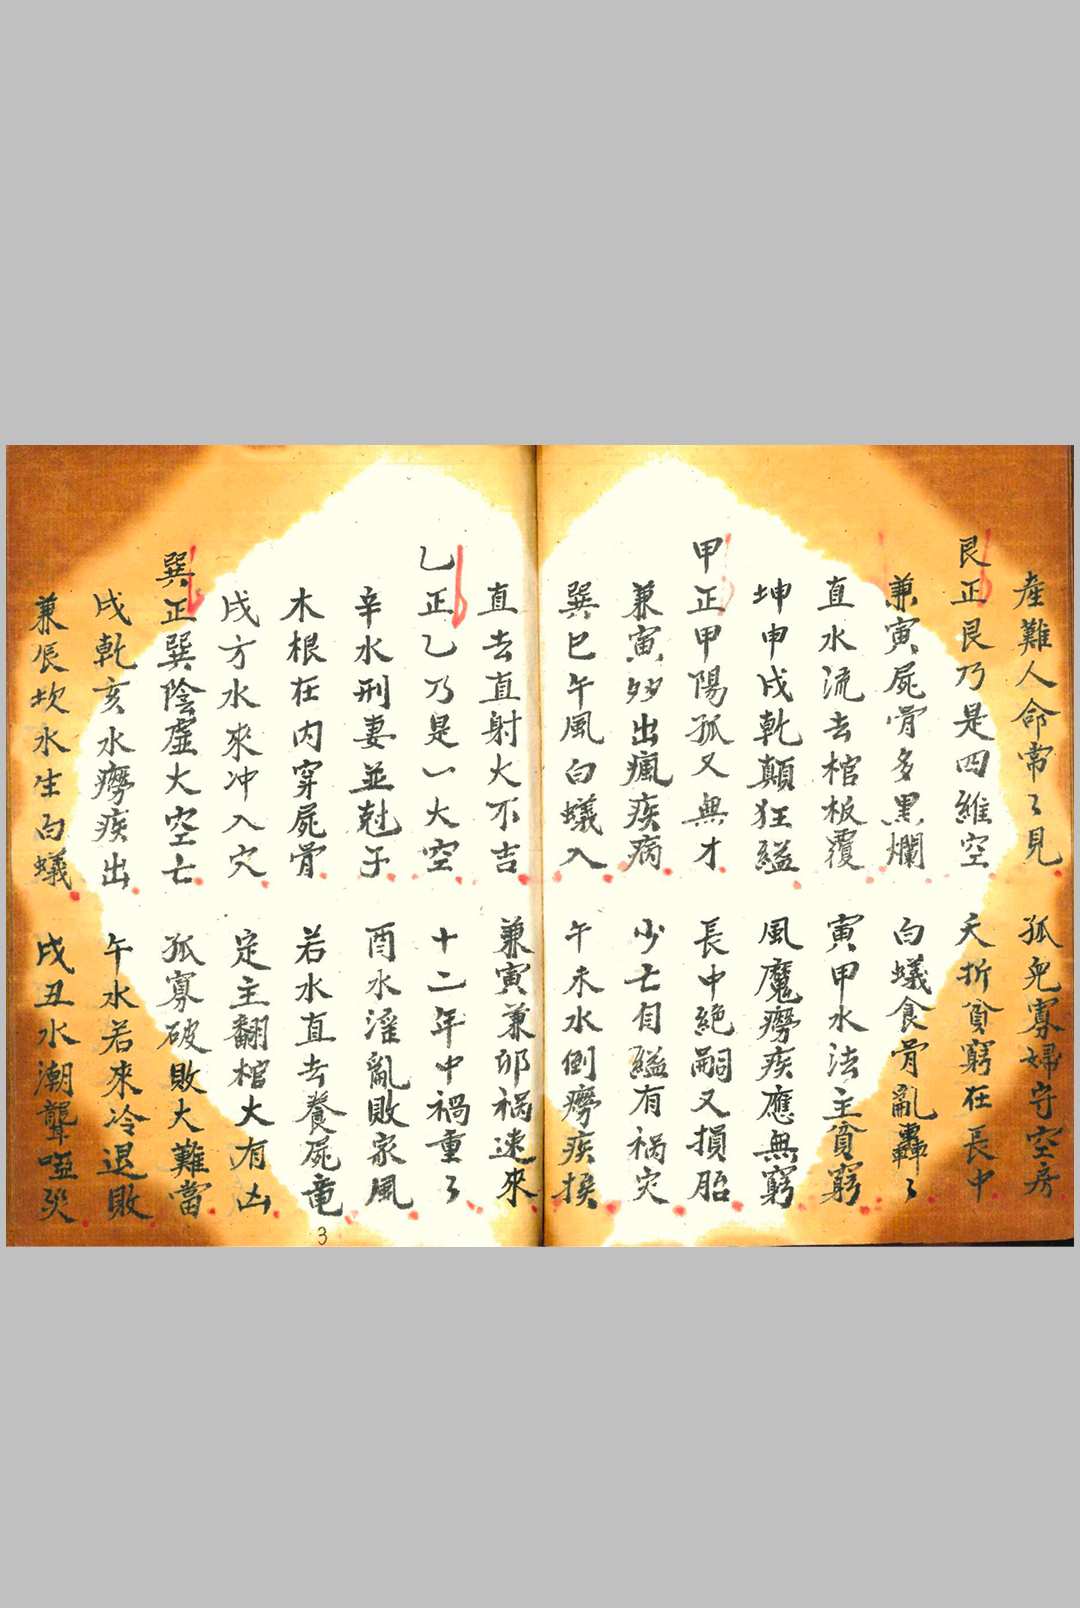 產難人命常〻見 孤兒寡婦守空房
艮正艮乃是四維空 夭折貧窮在長中
兼寅屍骨多黑爛 白蟻食骨亂轟〻
直水流去棺板覆 寅甲水法主貧窮
坤申戌乾顛狂縊 風魔癆疾應無窮
甲正甲陽孤又無才 長中絶嗣又損胎
兼寅夥出瘋疾病 少亡自縊有禍灾
巽巳午風白蟻入 午未水倒癆疾挨
直去直射大不吉 兼寅兼卯禍速來
乙正乙乃是一大空 十二年中禍重〻
辛水刑妻並尅子 酉水淫亂敗家風
木根在内穿屍骨 若水直去養屍竜
戌方水來冲入穴 定主翻棺大有凶
巽正巽陰虛大空亡 孤寡破敗大難當
戌乾亥水癆疾出 午水若來冷退敗
兼辰坎水生白蟻 戌丑水潮聾啞災
3